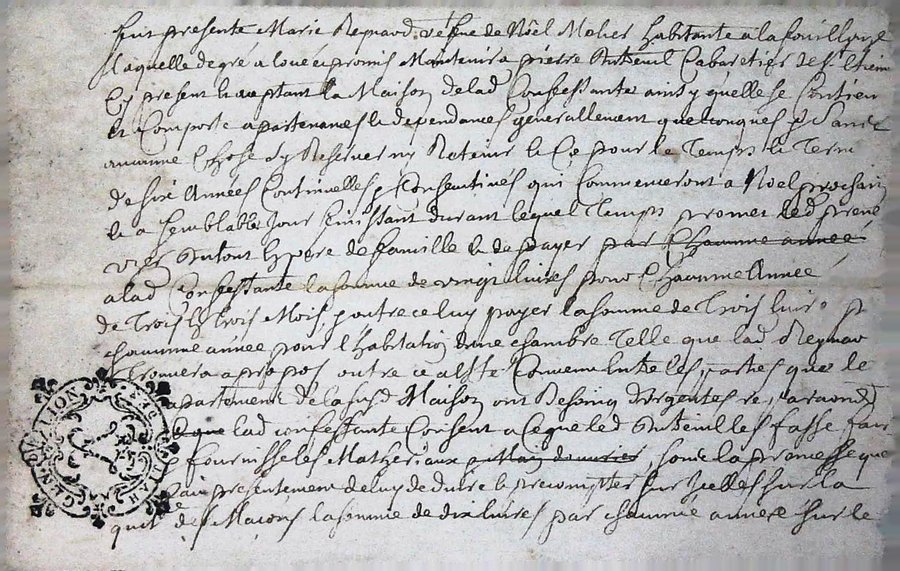 fut presente Marie Reynard vefve de Nôel Moher habitante a la fouillouze
laquelle de gré a loué et promis Maintenir a pierre Cabaretier de St Etienne
Cy present la Maison de lad Confessante ainsy quelle se Contien
et Comporte apartenances & dependances generallement quelconques sans
aucune Chose sy Reserver ny Retenir & Ce pour le Temps & Term
de six Années Continuelles & Consecutives qui Commenceront a Noel prochain
& a semblable Jour finissant durant lequel Temps promet led prene
vivre en tout père de famille & de payer par Chacunne année
a lad Confessante la somme de vingt livres pour Chacunne Année
de Trois En Trois Mois, & outre ce luy payer la somme de Trois livres
chacunne année pour l'habitation d'une chambre Telle que lad Reynar
Trouvera a propos outre ce a esté Convenu Entre les parties que le
apartements de la susd Maison ont Besoing d'urgentes reparaons
& que lad confessante Consent a Ce que led les fasse fair
& fournisse les Matheriaux sous la promesse que
fait presentement de luy deduire sur Icelles sur la
quit des Maçons la somme de dix livres par chacunne année sur le
GENERALITE DE LION